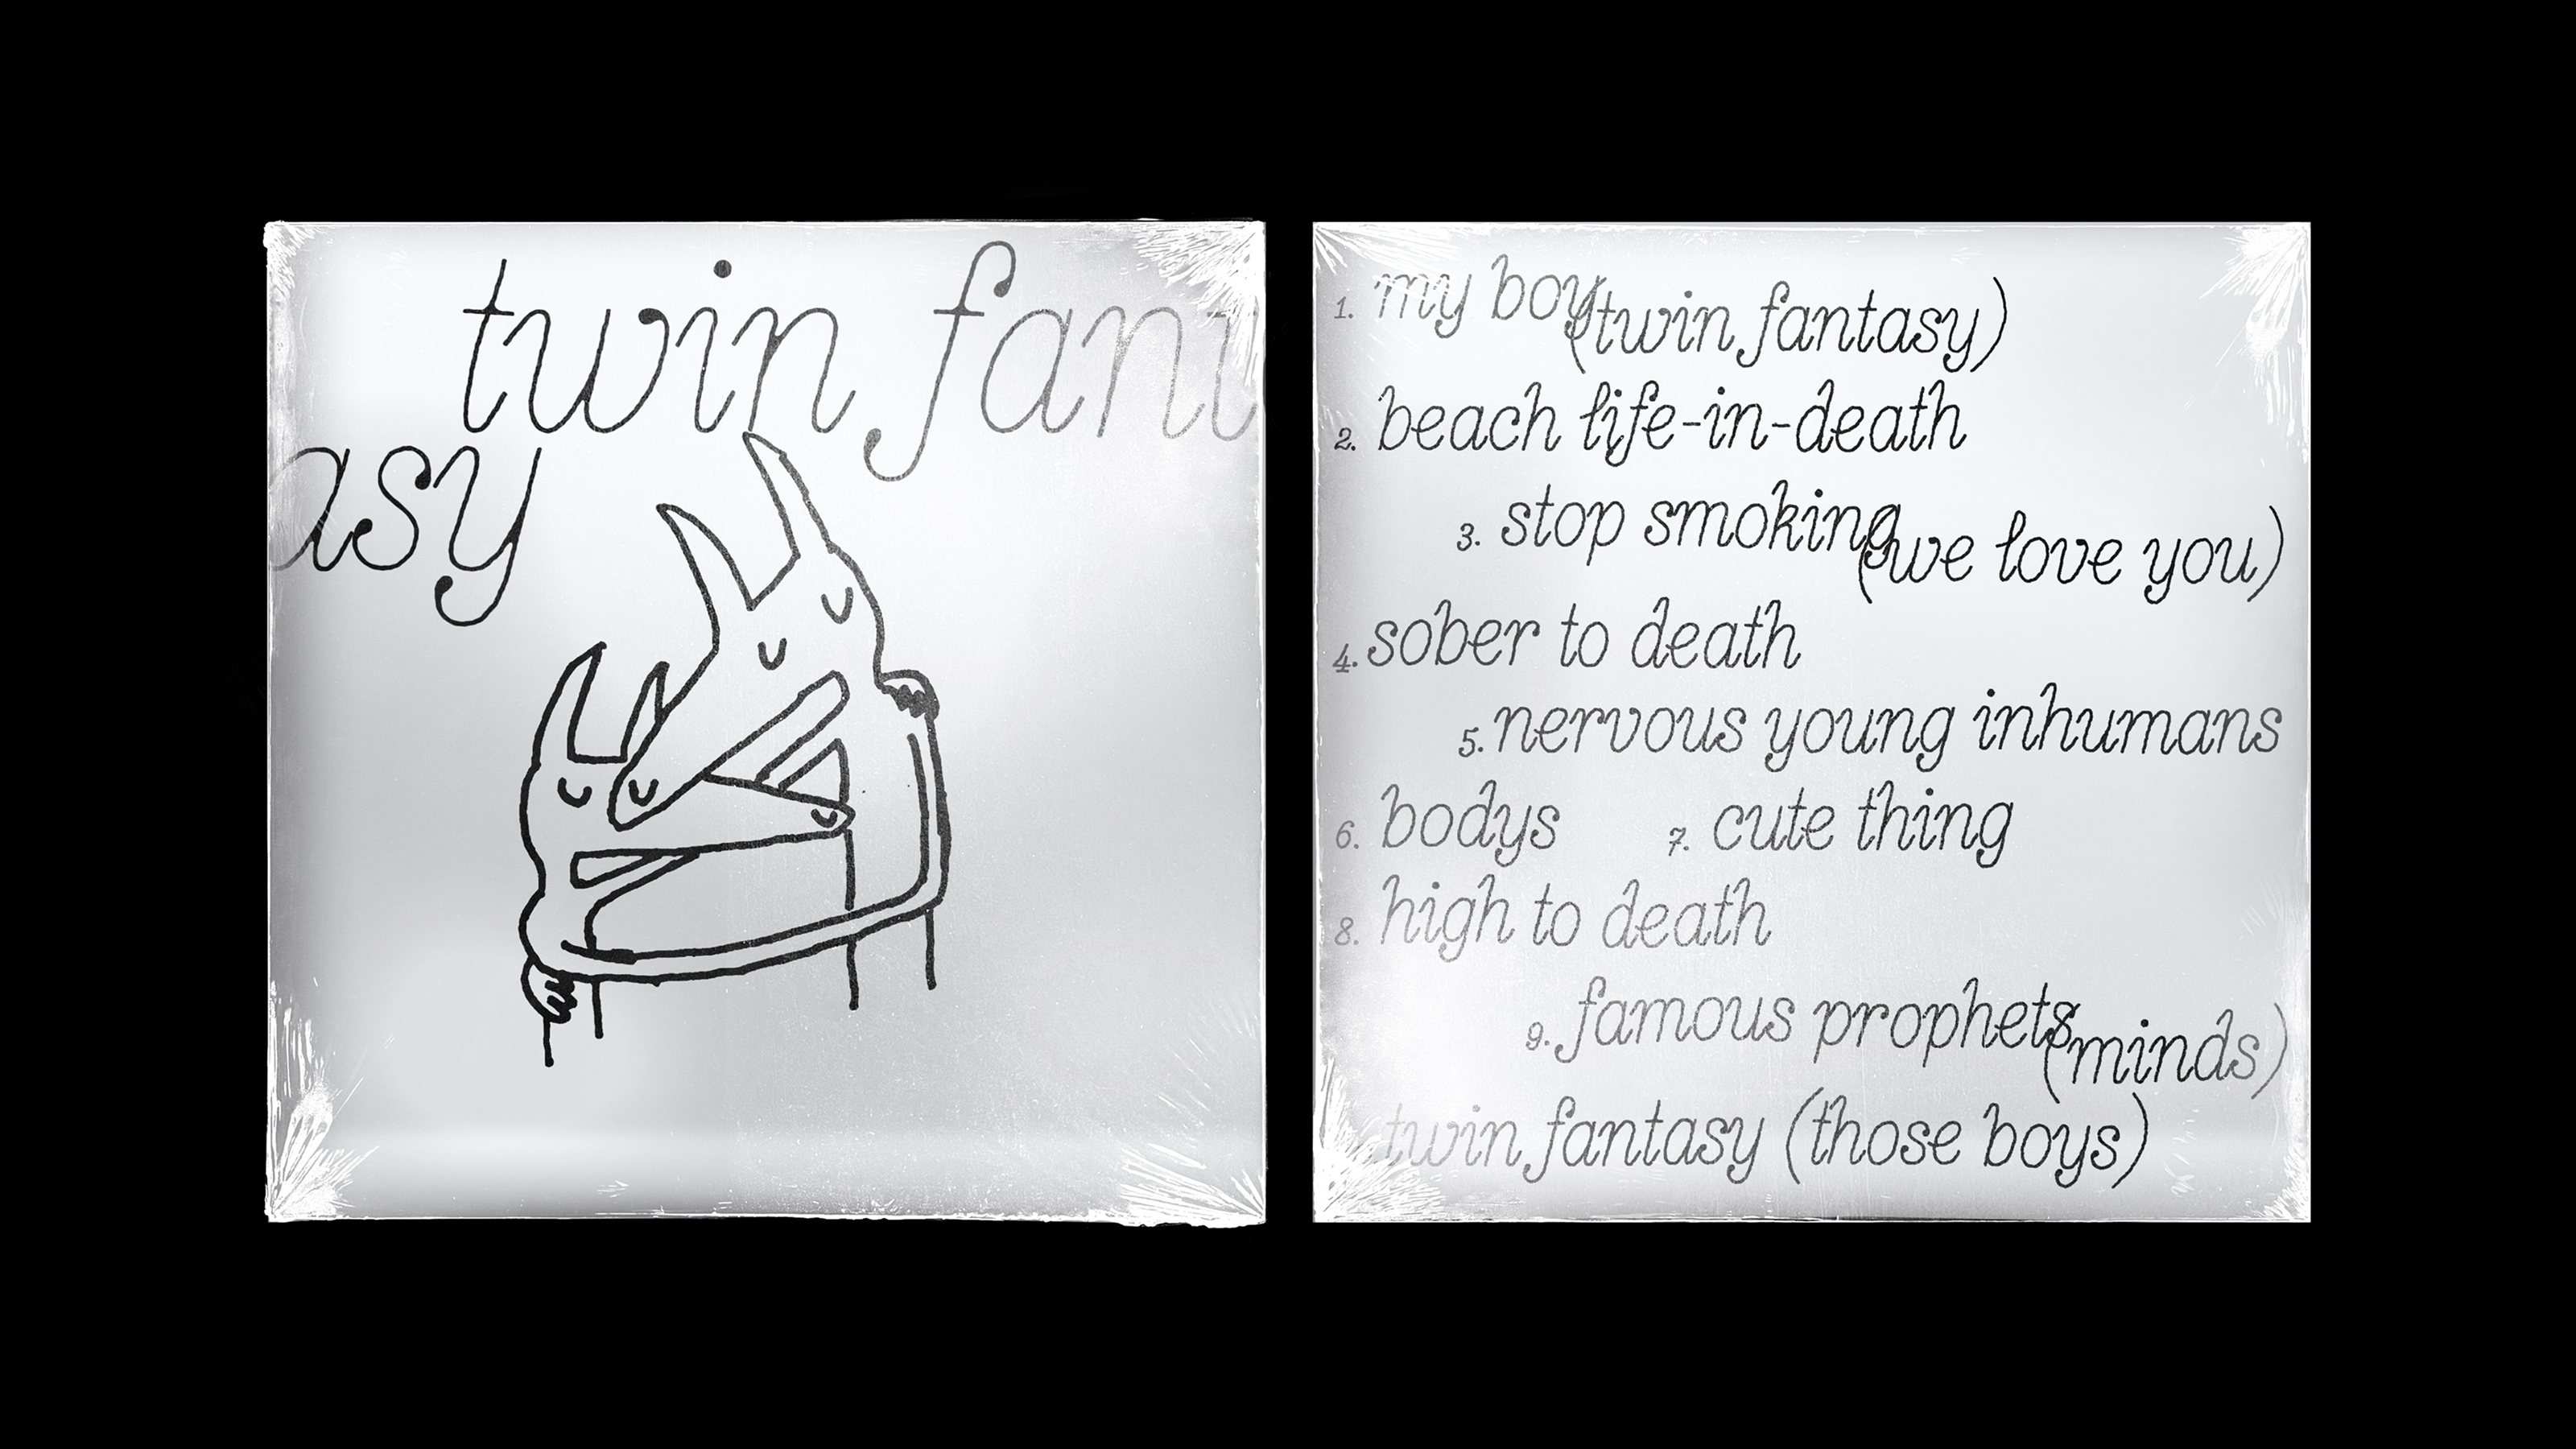 twin fant
asy
1. my boy (twin fantasy)
2. beach life-in-death
3. stop smoking (we love you)
4. sober to death
5. nervous young inhumans
6. bodys 7. cute thing
8. high to death
9. famous prophets (minds)
twin fantasy (those boys)